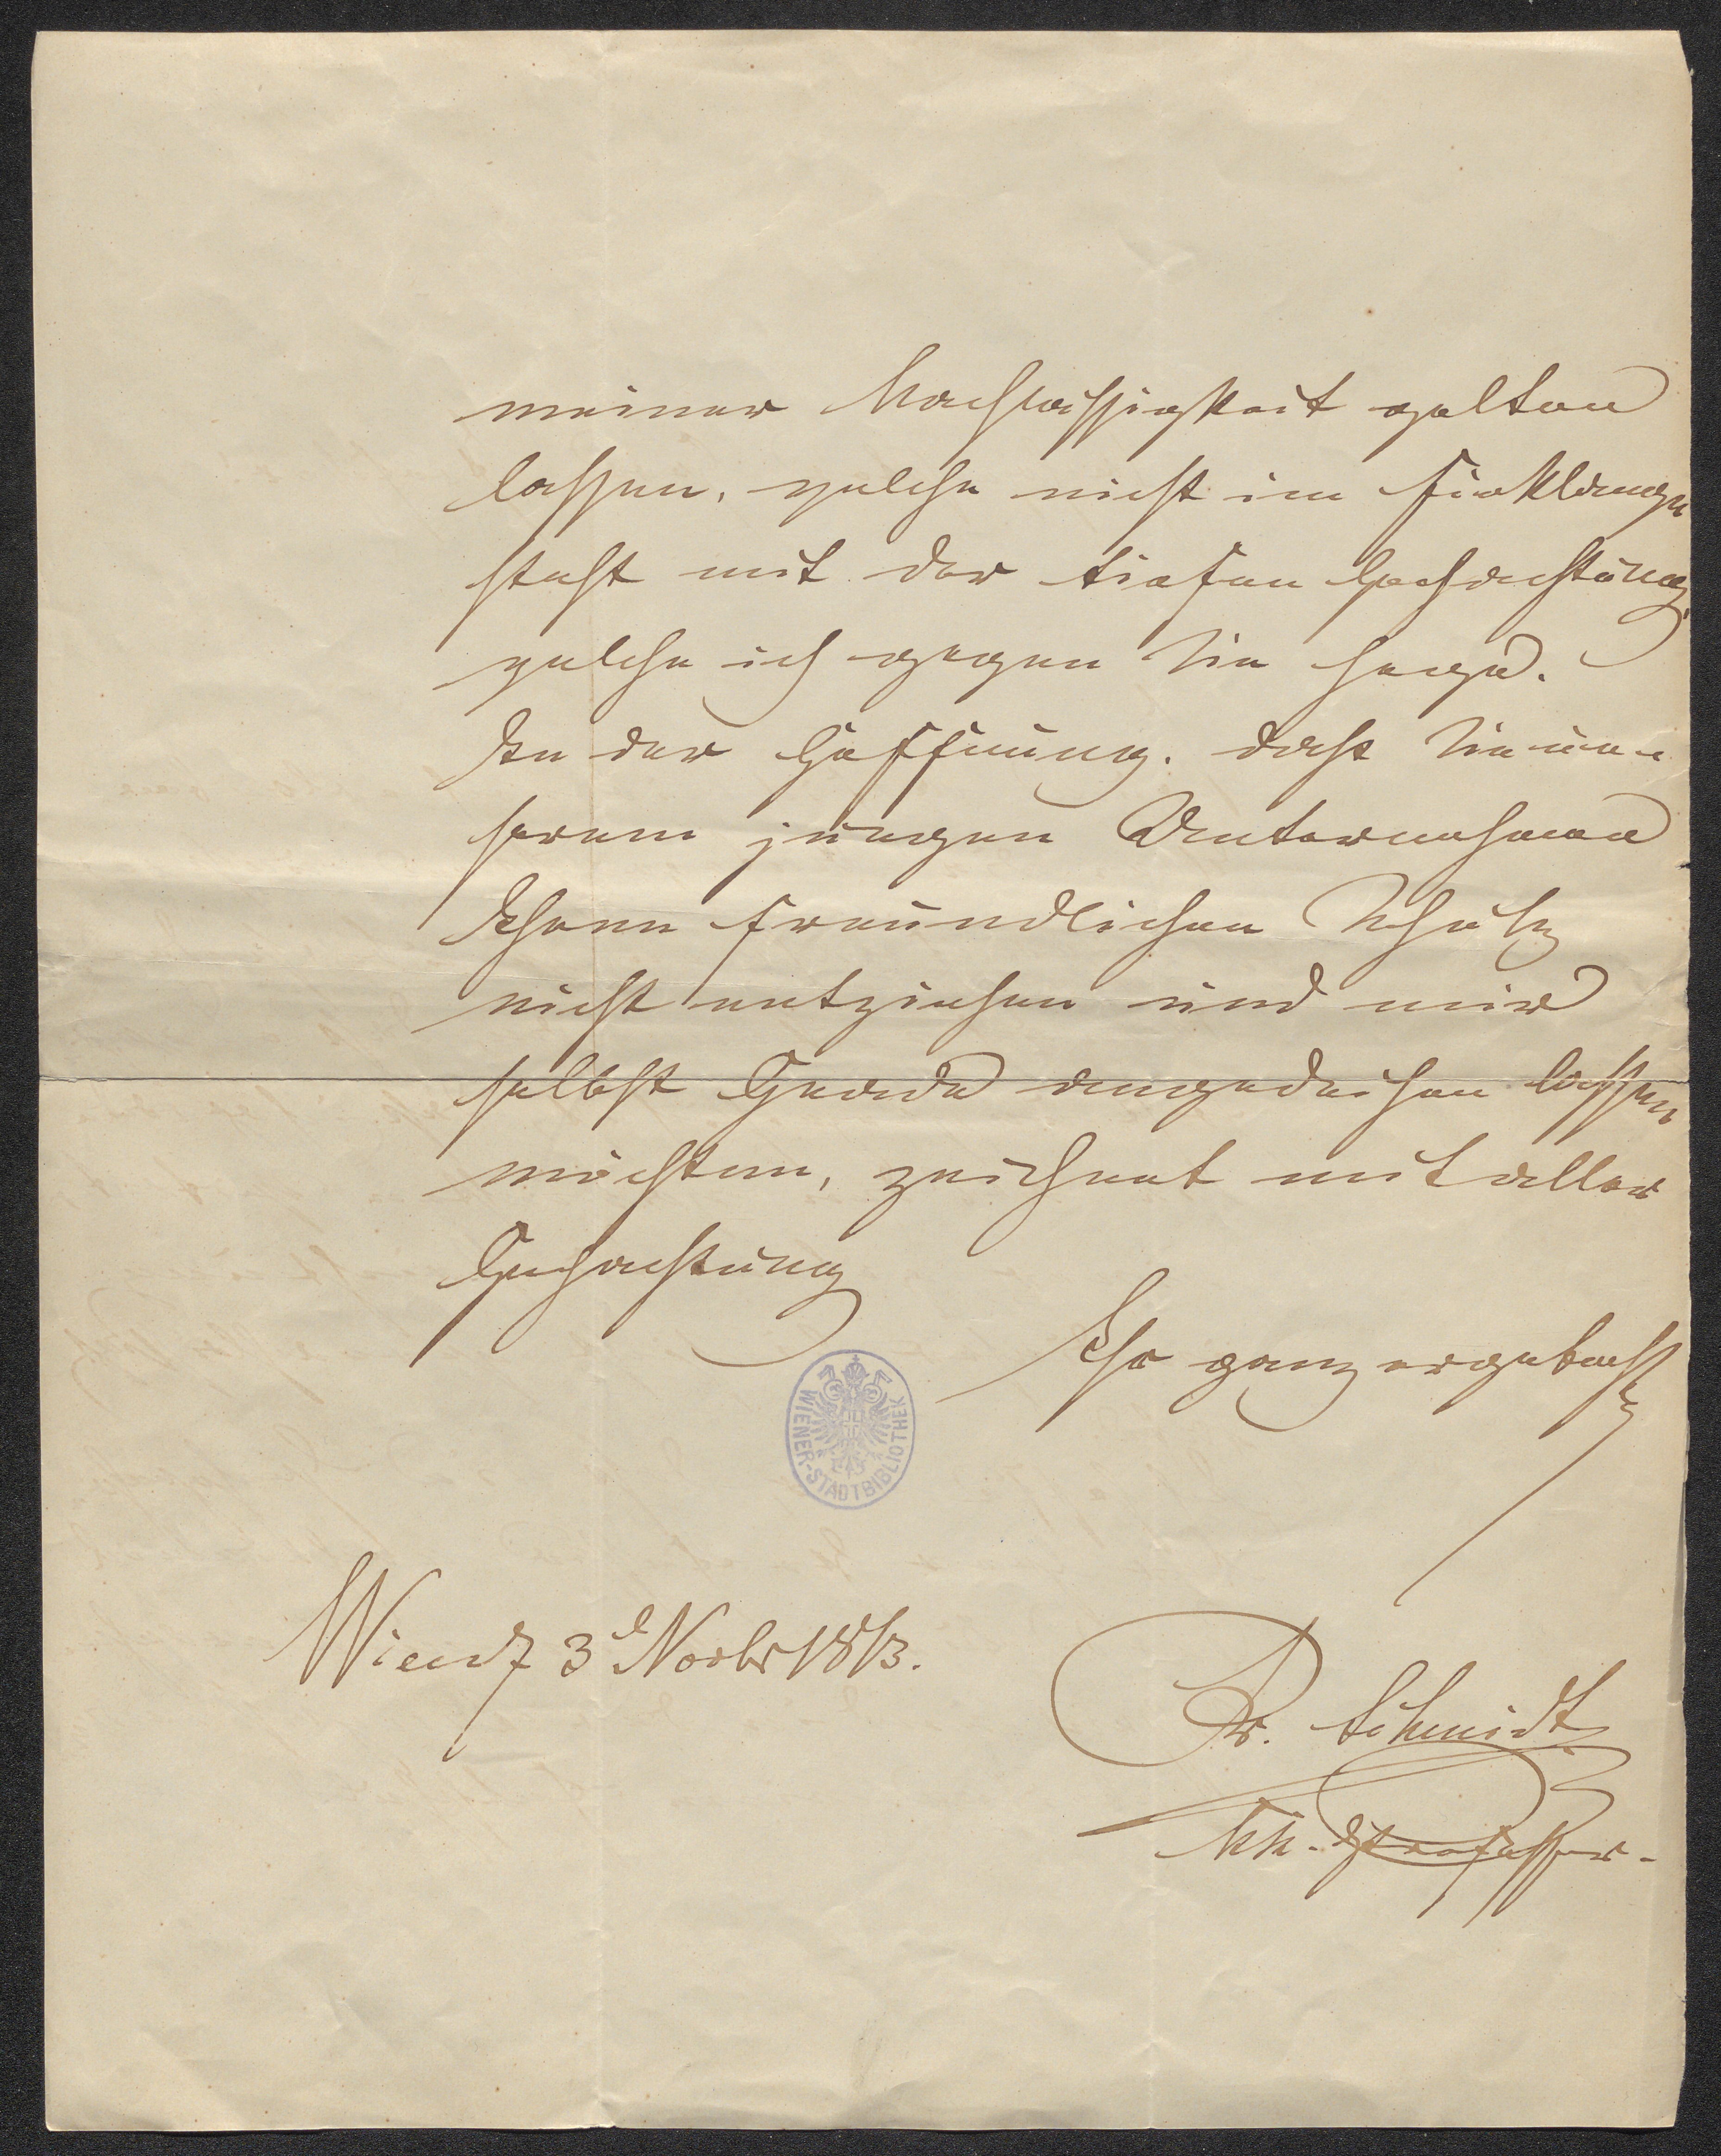 meiner Nachlässigkeit gelten
lassen, welche nicht im Einklange
steht mit der tiefen Hochachtung
welche ich gegen Sie hege.
In der Hoffnung, daß Sie un-
serem jungen Unternehmen
Ihren freundlichen Schutz
nicht entziehen und mir
selbst Gnade angedeihen lassen
möchten, zeichnet mit aller
Hochachtung
Ihr ganz ergebenst
WIENER-STADTBIBLIOTHEK
Wien d 3 Novbr
Fr. Schmidt
kk. Professor.